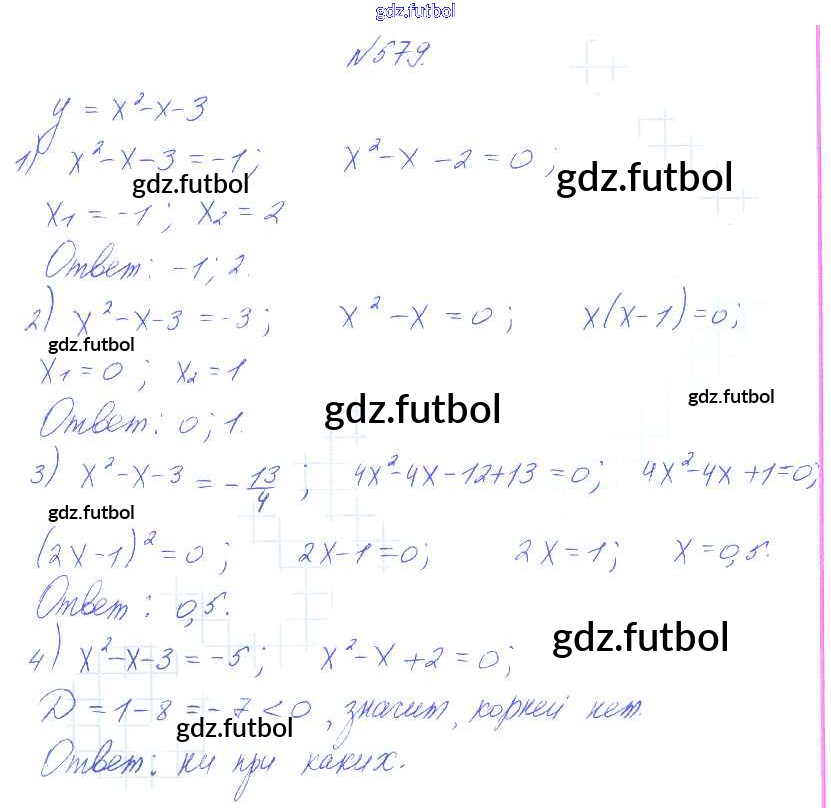 gdz.futbol
№579.
y = x²-x-3
1) x²-x-3=-1; x²-x-2=0;
gdz.futbol gdz.futbol
x₁=-1; x₂=2
Ответ: -1; 2.
2) x²-x-3=-3; x²-x=0; x(x-1)=0;
gdz.futbol
x₁=0; x₂=1
gdz.futbol gdz.futbol
Ответ: 0; 1.
3) x²-x-3=-13/4; 4x²-4x-12+13=0; 4x²-4x+1=0;
gdz.futbol
(2x-1)²=0; 2x-1=0; 2x=1; x=0,5.
Ответ: 0,5.
gdz.futbol
4) x²-x-3=-5; x²-x+2=0;
D=1-8=-7<0, значит, корней нет.
gdz.futbol
Ответ: ни при каких.